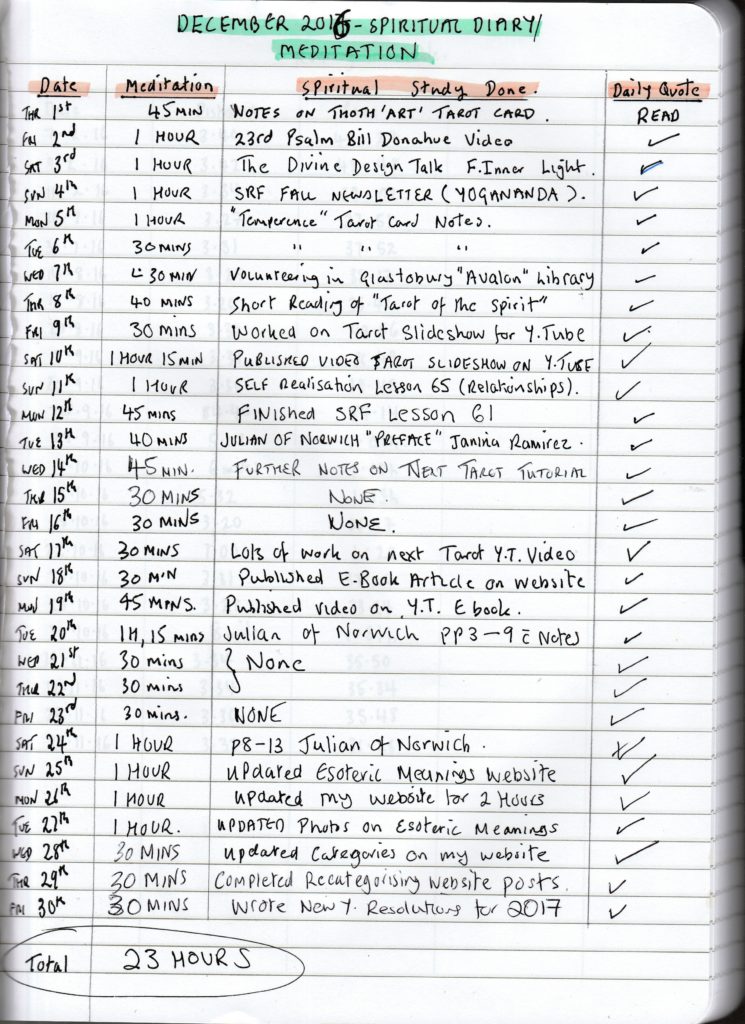 DECEMBER 2016 - SPIRITUAL DIARY/
MEDITATION
Date Meditation Spiritual Study Done. Daily Quote
THR 1st 45 MIN NOTES ON THOTH 'ART' TAROT CARD. READ
FRI 2nd 1 HOUR 23rd Psalm Bill Donahue Video ✓
SAT 3rd 1 HOUR The Divine Design Talk F. Inner Light. ✓
SUN 4th 1 HOUR SRF FALL NEWSLETTER (YOGANANDA). ✓
MON 5th 1 HOUR "Temperence" Tarot Card Notes. ✓
TUE 6th 30 MINS " " " ✓
WED 7th 30 MIN Volunteering in Glastobury "Avalon" Library ✓
THR 8th 40 MINS Short Reading of "Tarot of the Spirit" ✓
FRI 9th 30 mins Worked on Tarot Slideshow for Y.Tube ✓
SAT 10th 1 HOUR 15 MIN PUBLISHED VIDEO TAROT SLIDESHOW ON Y.TUBE ✓
SUN 11th 1 HOUR SELF Realisation Lesson 65 (Relationships). ✓
MUN 12th 45 mins FINISHED SRF LESSON 61 ✓
TUE 13th 40 MINS JULIAN OF NORWICH "PREFACE" Janina Ramirez. ✓
WED 14th 45 MIN. FURTHER NOTES ON NEXT TAROT TUTORIAL ✓
THR 15th 30 MINS NONE. ✓
FRI 16th 30 MINS NONE. ✓
SAT 17th 30 MINS Lots of work on next Tarot Y.T. Video ✓
SUN 18th 30 MIN Published E-Book Article on website ✓
MUN 19th 45 MINS. Published video on Y.T. E book. ✓
TUE 20th 1H, 15 mins Julian of Norwich PP3-9 c̄ Notes ✓
WED 21st 30 mins } None ✓
THUR 22nd 30 mins ✓
FRI 23rd 30 mins. NONE ✓
SAT 24th 1 HOUR P8-13 Julian of Norwich. ✓
SUN 25th 1 HOUR Updated Esoteric Meanings Website ✓
MON 26th 1 HOUR Updated my website for 2 HOURS ✓
TUE 27th 1 HOUR. UPDATED Photos on Esoteric Meanings ✓
WED 28th 30 MINS Updated Categories on my website ✓
THR 29th 30 MINS Completed Recategorising Website posts. ✓
FRI 30th 30 MINS Wrote New Y. Resolutions for 2017 ✓
Total 23 HOURS